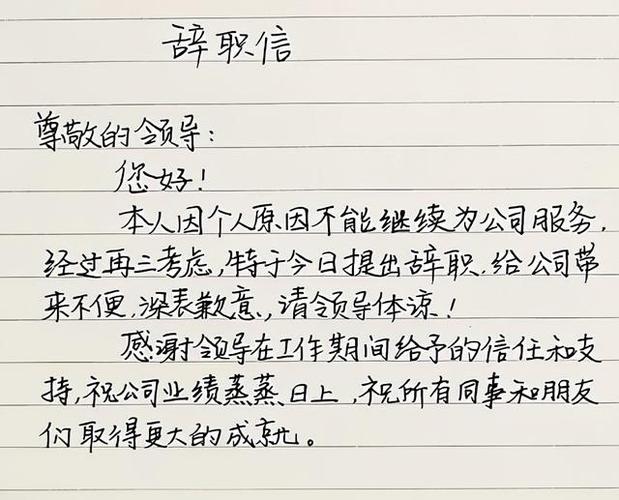 辞职信
尊敬的领导:
您好!
本人因个人原因不能继续为公司服务,
经过再三考虑,特于今日提出辞职.给公司带
来不便,深表歉意,请领导体凉!
感谢领导在工作期间给予的信任和支
持,祝公司业绩蒸蒸日上,祝所有同事和朋友
们取得更大的成就。